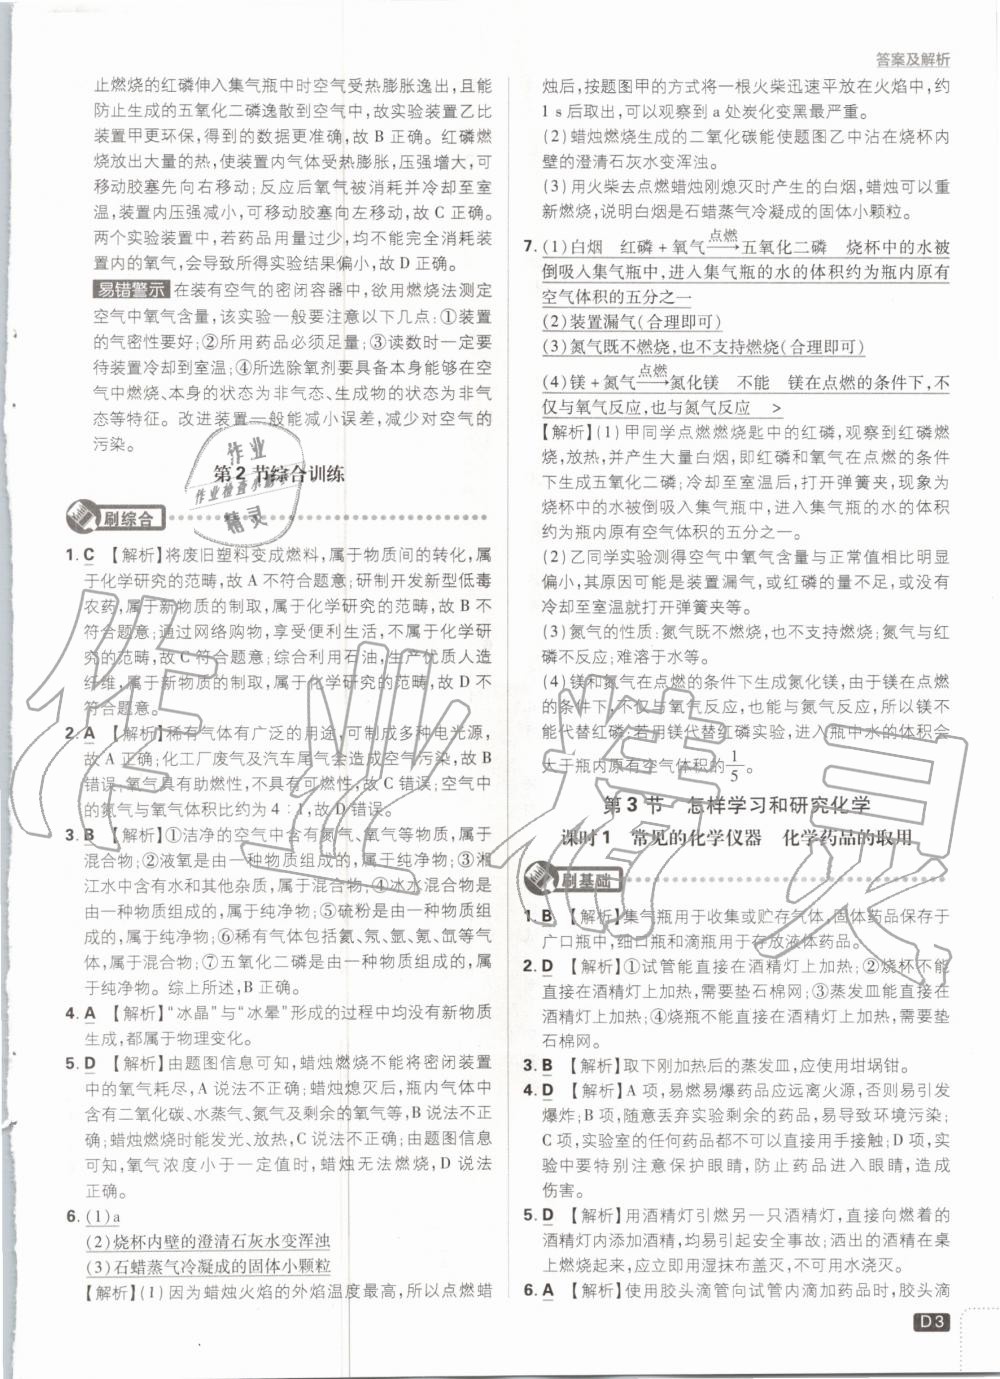 答案及解析
止燃烧的红磷伸入集气瓶中时空气受热膨胀逸出,且能
防止生成的五氧化二磷逸散到空气中,故实验装置乙比
装置甲更环保,得到的数据更准确,故 B 正确。红磷燃
烧放出大量的热,使装置内气体受热膨胀,压强增大,可
移动胶塞先向右移动;反应后氧气被消耗并冷却至室
温,装置内压强减小,可移动胶塞向左移动,故 C 正确。
两个实验装置中,若药品用量过少,均不能完全消耗装
置内的氧气,会导致所得实验结果偏小,故 D 正确。
易错警示 在装有空气的密闭容器中,欲用燃烧法测定
空气中氧气含量,该实验一般要注意以下几点:①装置
的气密性要好;②所用药品必须足量;③读数时一定要
待装置冷却到室温;④所选除氧剂要具备本身能够在空
气中燃烧、本身的状态为非气态、生成物的状态为非气
态等特征。改进装置一般能减小误差,减少对空气的
污染。
第2节综合训练
刷综合
1. C 【解析】将废旧塑料变成燃料,属于物质间的转化,属
于化学研究的范畴,故 A 不符合题意;研制开发新型低毒
农药,属于新物质的制取,属于化学研究的范畴,故 B 不
符合题意;通过网络购物,享受便利生活,不属于化学研
究的范畴,故 C 符合题意;综合利用石油,生产优质人造
纤维,属于新物质的制取,属于化学研究的范畴,故 D 不
符合题意。
2. A 【解析】稀有气体有广泛的用途,可制成多种电光源,
故 A 正确;化工厂废气及汽车尾气会造成空气污染,故 B
错误;氧气具有助燃性,不具有可燃性,故 C 错误;空气中
的氮气与氧气体积比约为 4∶1,故 D 错误。
3. B 【解析】①洁净的空气中含有氮气、氧气等物质,属于
混合物;②液氧是由一种物质组成的,属于纯净物;③湘
江水中含有水和其他杂质,属于混合物;④冰水混合物是
由一种物质组成的,属于纯净物;⑤硫粉是由一种物质组
成的,属于纯净物;⑥稀有气体包括氦、氖、氩、氪、氙等气
体,属于混合物;⑦五氧化二磷是由一种物质组成的,属
于纯净物。综上所述,B 正确。
4. A 【解析】“冰晶”与“冰晕”形成的过程中均没有新物质
生成,都属于物理变化。
5. D 【解析】由题图信息可知,蜡烛燃烧不能将密闭装置
中的氧气耗尽,A 说法不正确;蜡烛熄灭后,瓶内气体中
含有二氧化碳、水蒸气、氮气及剩余的氧气等,B 说法不正
确;蜡烛燃烧时能发光、放热,C 说法不正确;由题图信息
可知,氧气浓度小于一定值时,蜡烛无法燃烧,D 说法
正确。
6. (1)a
(2)烧杯内壁的澄清石灰水变浑浊
(3)石蜡蒸气冷凝成的固体小颗粒
【解析】(1)因为蜡烛火焰的外焰温度最高,所以点燃蜡
烛后,按题图甲的方式将一根火柴迅速平放在火焰中,约
1 s 后取出,可以观察到 a 处炭化变黑最严重。
(2)蜡烛燃烧生成的二氧化碳能使题图乙中沾在烧杯内
壁的澄清石灰水变浑浊。
(3)用火柴去点燃蜡烛刚熄灭时产生的白烟,蜡烛可以重
新燃烧,说明白烟是石蜡蒸气冷凝成的固体小颗粒。
7. (1)白烟 红磷+氧气 点燃→ 五氧化二磷 烧杯中的水被
倒吸入集气瓶中,进入集气瓶的水的体积约为瓶内原有
空气体积的五分之一
(2)装置漏气(合理即可)
(3)氮气既不燃烧,也不支持燃烧(合理即可)
(4)镁+氮气 点燃→ 氮化镁 不能 镁在点燃的条件下,不
仅与氧气反应,也与氮气反应 >
【解析】(1)甲同学点燃燃烧匙中的红磷,观察到红磷燃
烧,放热,并产生大量白烟,即红磷和氧气在点燃的条件
下生成五氧化二磷;冷却至室温后,打开弹簧夹,现象为
烧杯中的水被倒吸入集气瓶中,进入集气瓶的水的体积
约为瓶内原有空气体积的五分之一。
(2)乙同学实验测得空气中氧气含量与正常值相比明显
偏小,其原因可能是装置漏气,或红磷的量不足,或没有
冷却至室温就打开弹簧夹等。
(3)氮气的性质:氮气既不燃烧,也不支持燃烧;氮气与红
磷不反应;难溶于水等。
(4)镁和氮气在点燃的条件下生成氮化镁,由于镁在点燃
的条件下,不仅与氧气反应,也能与氮气反应,所以镁不
能代替红磷;若用镁代替红磷实验,进入瓶中水的体积会
大于瓶内原有空气体积的1/5。
第3节 怎样学习和研究化学
课时1 常见的化学仪器 化学药品的取用
刷基础
1. B 【解析】集气瓶用于收集或贮存气体,固体药品保存于
广口瓶中,细口瓶和滴瓶用于存放液体药品。
2. D 【解析】①试管能直接在酒精灯上加热;②烧杯不能
直接在酒精灯上加热,需要垫石棉网;③蒸发皿能直接在
酒精灯上加热;④烧瓶不能直接在酒精灯上加热,需要垫
石棉网。
3. B 【解析】取下刚加热后的蒸发皿,应使用坩埚钳。
4. D 【解析】A 项,易燃易爆药品应远离火源,否则易引发
爆炸;B 项,随意丢弃实验剩余的药品,易导致环境污染;
C 项,实验室的任何药品都不可以直接用手接触;D 项,
实验中要特别注意保护眼睛,防止药品进入眼睛,造成
伤害。
5. D 【解析】用酒精灯引燃另一只酒精灯,直接向燃着的
酒精灯内添加酒精,均易引起安全事故;洒出的酒精在桌
上燃烧起来,应迅速用湿抹布盖灭,不可用水浇灭。
6. A 【解析】使用胶头滴管向试管内滴加药品时,胶头滴
D3
作业
作业检查小助手
精灵
作业精灵